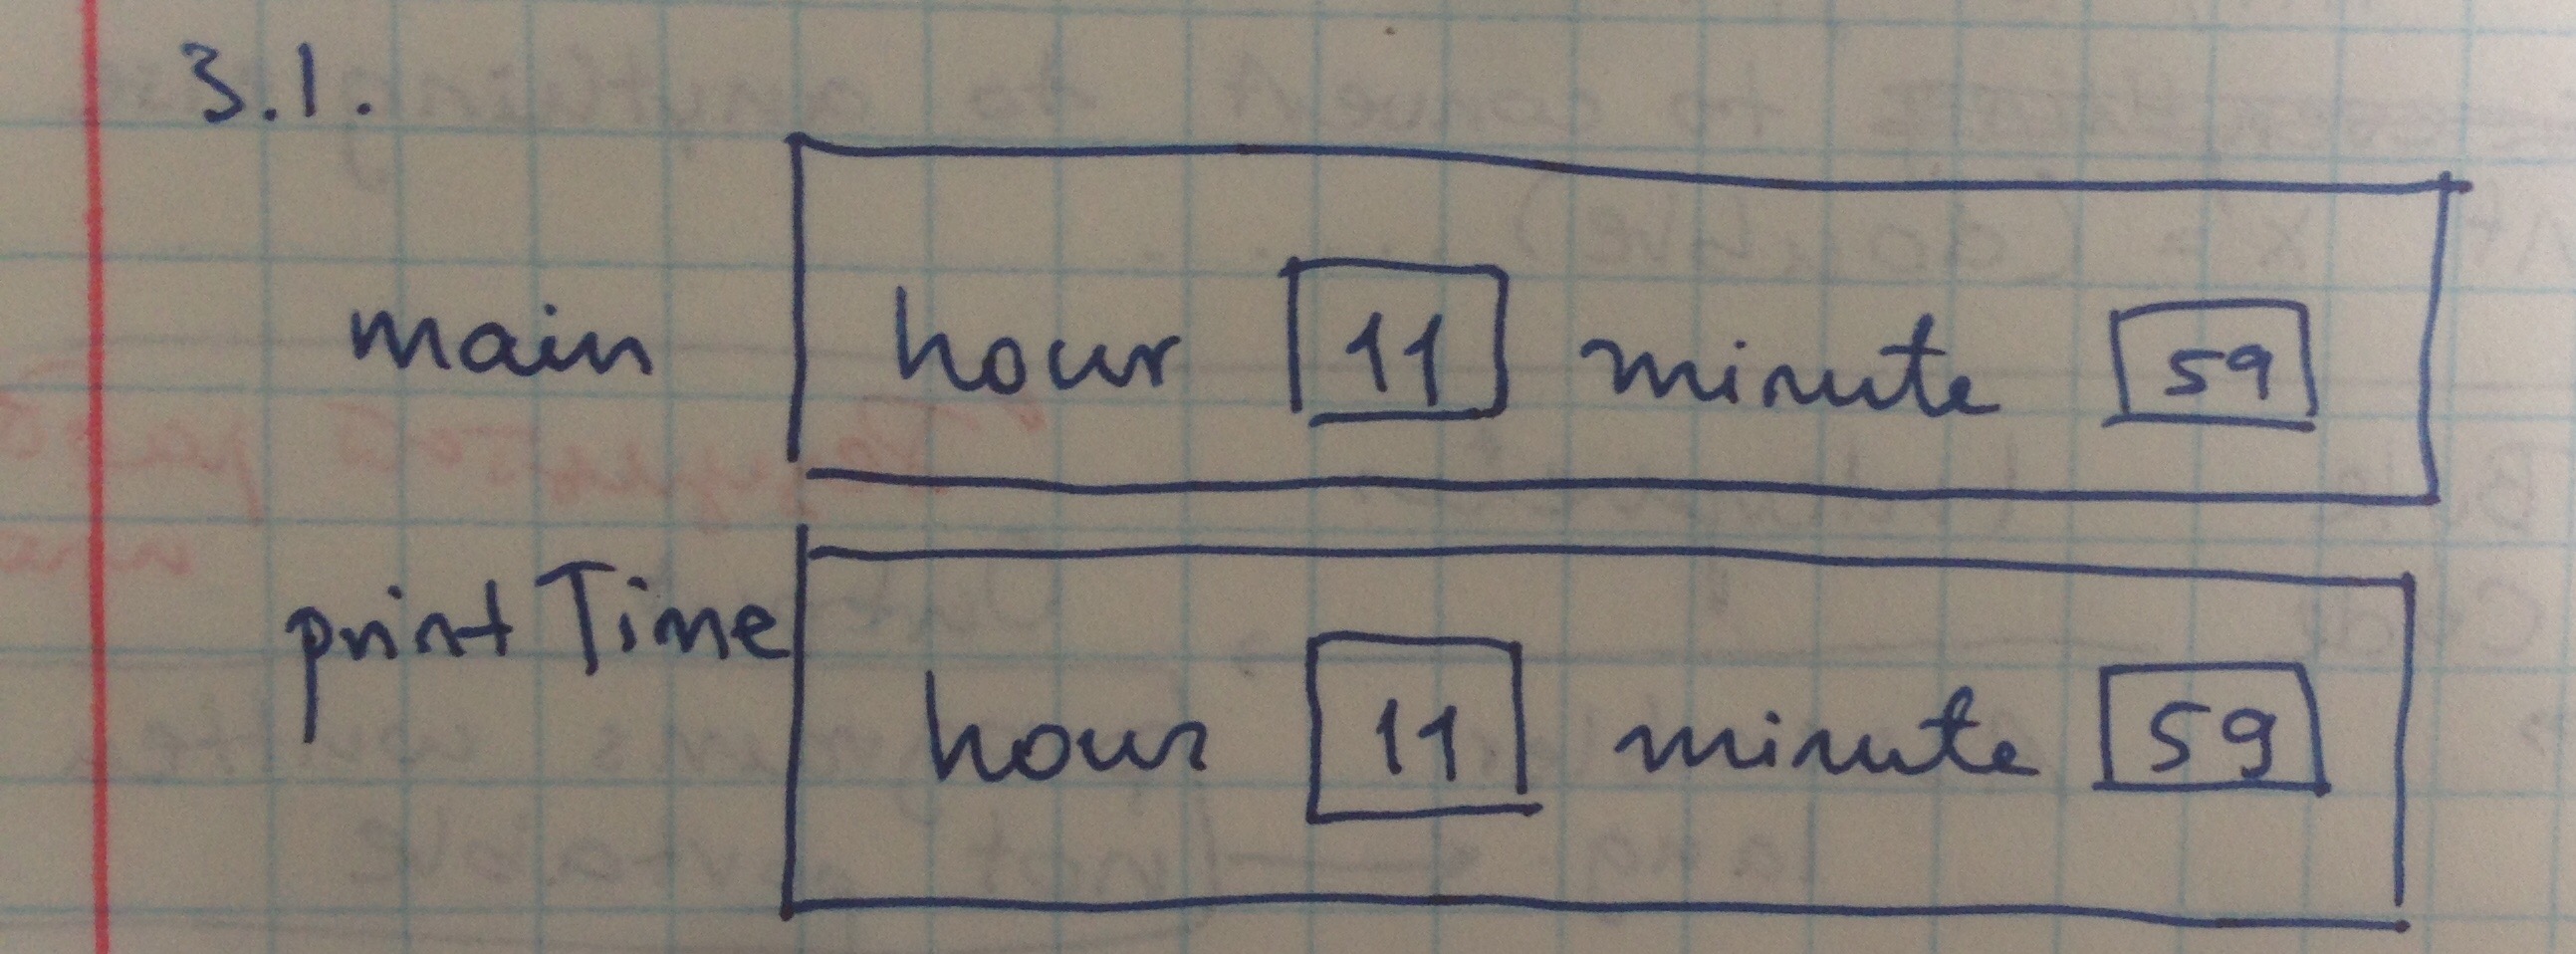 3.1.
main hour 11 minute 59
printTime hour 11 minute 59